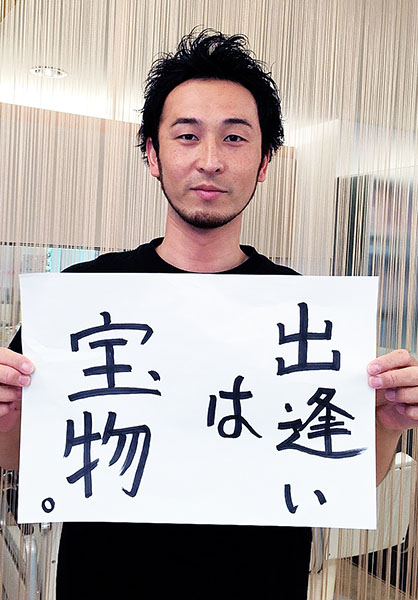 出逢い
は
宝物。